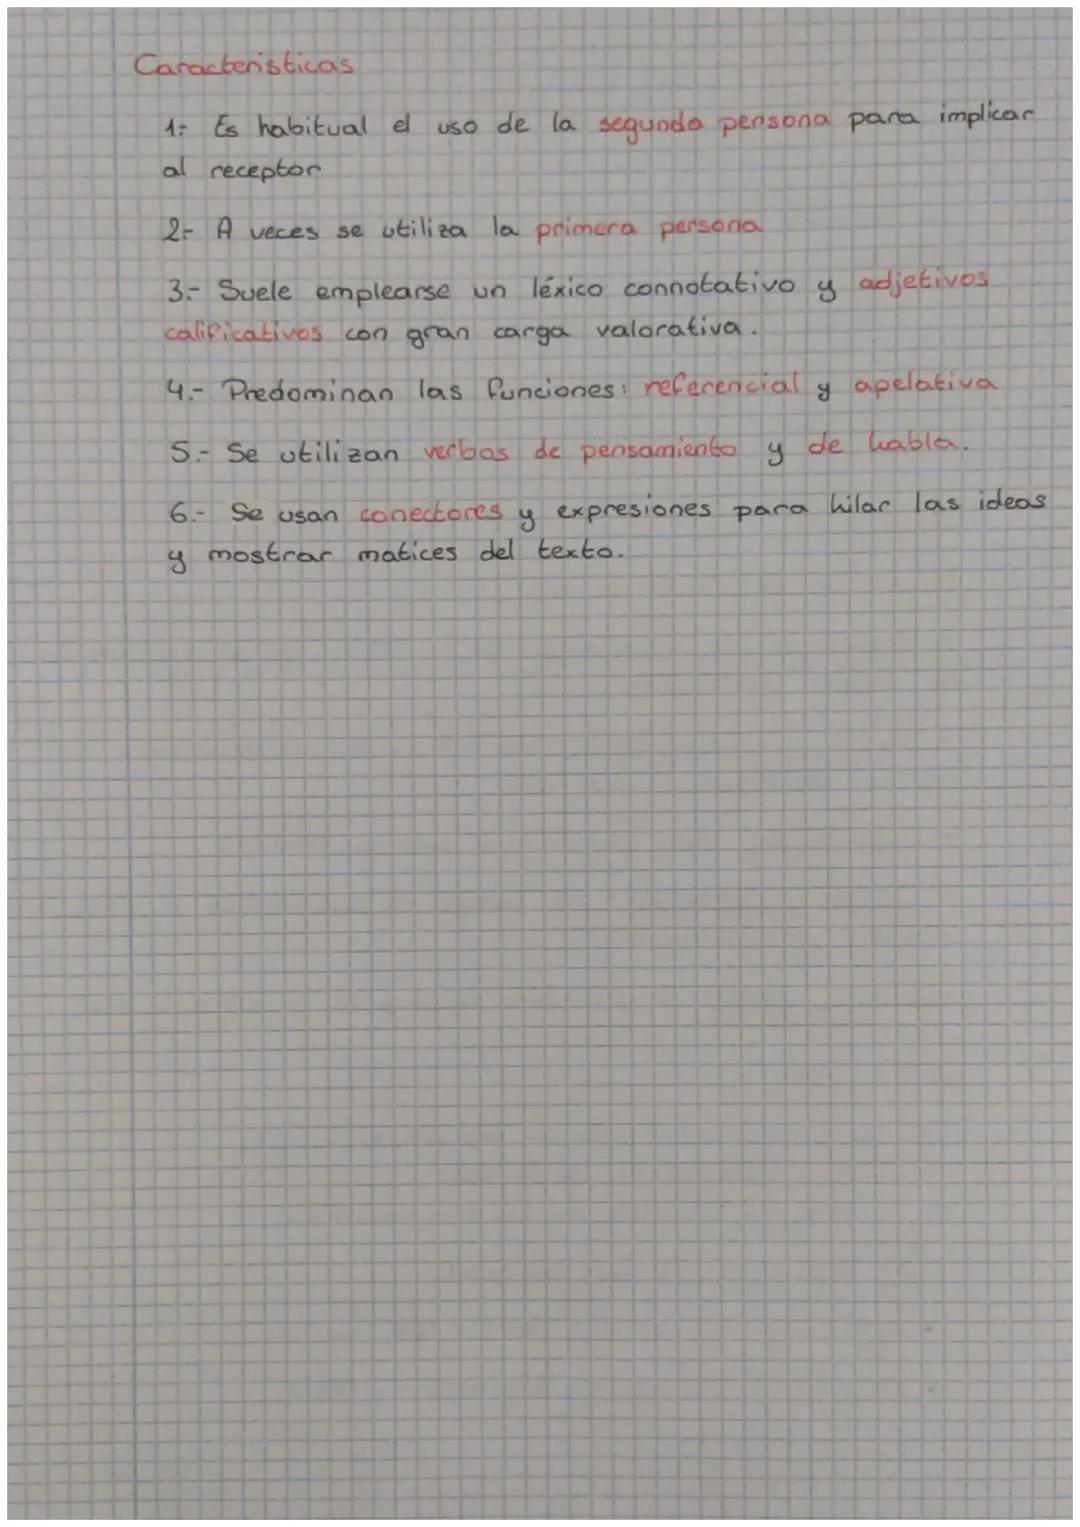 Caracteristicas
1:- Es habitual el uso de la segunda persona para implicar
al receptor
2:- A veces se utiliza la primera persona
3.- Suele emplearse un léxico connotativo y adjetivos
calificativos con gran carga valorativa.
4.- Predominan las funciones: referencial y apelativa
5.- Se utilizan verbos de pensamiento y de habla.
6.- Se usan conectores y expresiones para hilar las ideas
y mostrar matices del texto.